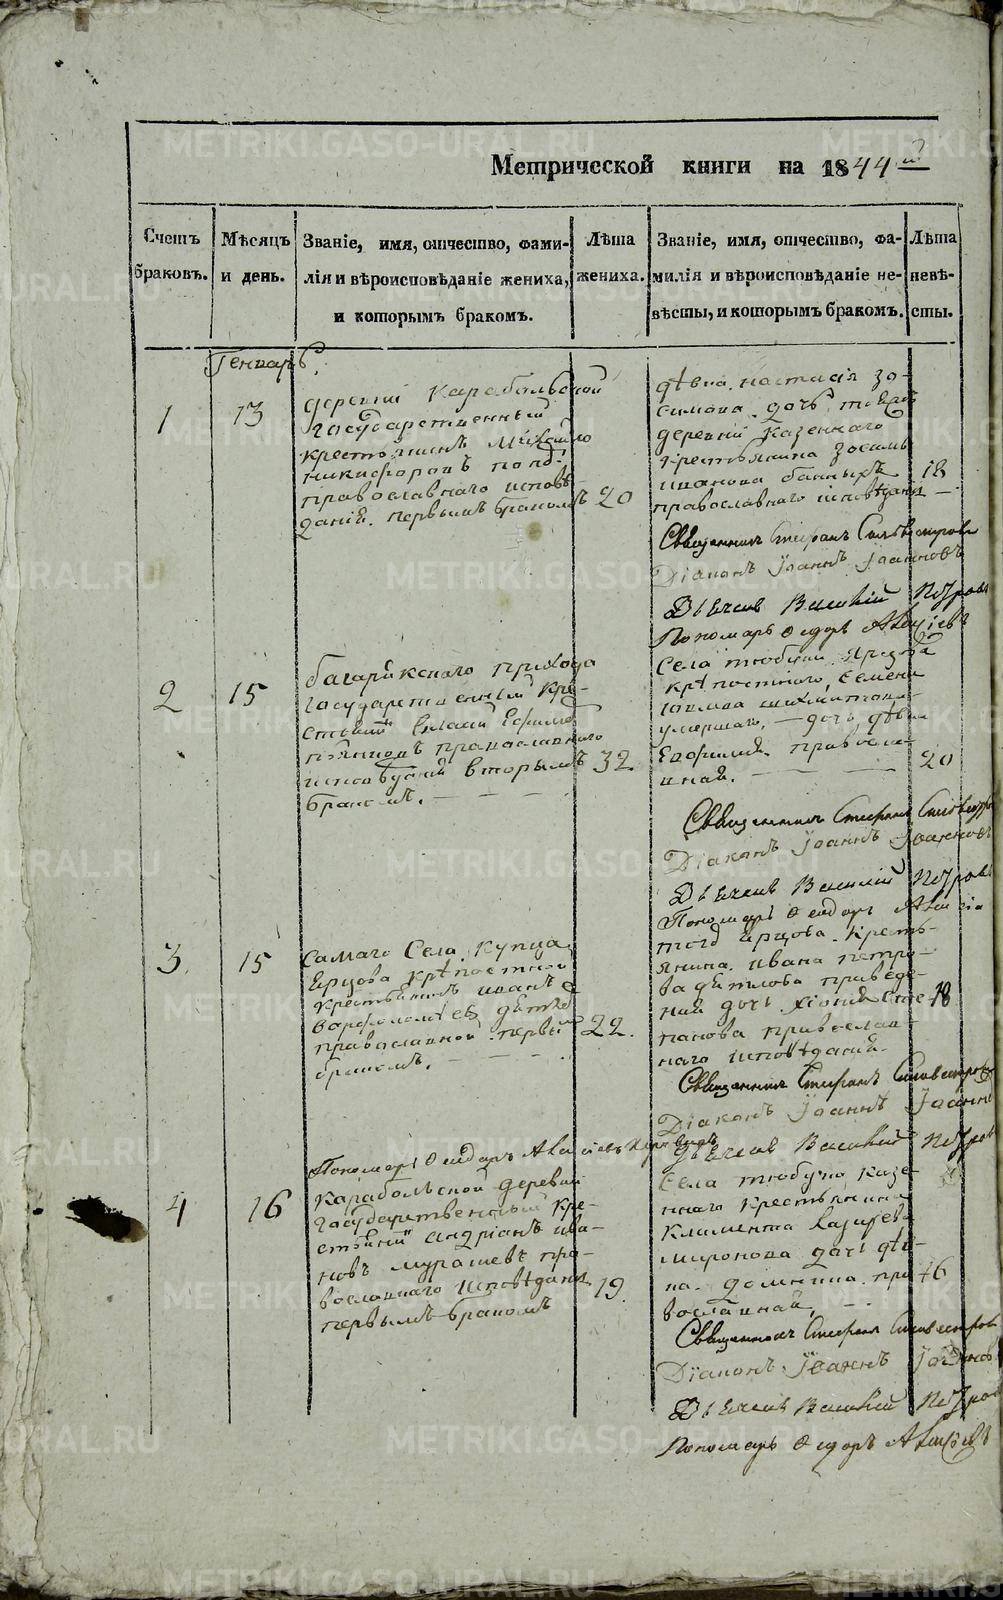 Метрической книги на 1844й
Счетъ браковъ.
Мѣсяцъ и день.
Званіе, имя, отчество, фами-
лія и вѣроисповѣданіе жениха,
и которымъ бракомъ.
Лѣта жениха.
Званіе, имя, отчество, фа-
милія и вѣроисповѣданіе не-
вѣсты, и которымъ бракомъ.
Лѣта невѣ-
сты.
Генварь.
1
13
деревни Карабольской
государственный
крестьянинъ Михайло
Никифоровъ
православнаго исповѣ-
данія. первымъ бракомъ
20
дѣвка Настасія Зо-
симова дочь тоей
деревни казеннаго
крестьянина Зосимы
Иванова
православнаго исповѣданія
18
Священникъ Стефанъ Сильвестровъ
Діаконъ Іоаннъ Іоанновъ
Дьячекъ Василій Петровъ
Пономарь Ѳедоръ Алексіевъ
2
15
багарякскаго прихода
государственный кре-
стьянинъ
православнаго
исповѣданія вторымъ
бракомъ.
32
Села Тюбукъ
крѣпостнаго Семена
умершаго, дочь дѣвка
Евфимія правосла-
вная.
20
Священникъ Стефанъ Сильвестровъ
Діаконъ Іоаннъ Іоанновъ
Дьячекъ Василій Петровъ
Пономарь Ѳеодоръ Алексіевъ
3
15
Самаго Села купца
крѣпостной
крестьянинъ Иванъ
Варфоломѣевъ
православной первымъ
бракомъ.
22.
того кресть-
янина Ивана Петро-
ва приведе-
ная дочь Ксенія Сте-
панова православ-
наго исповѣданія.
18
Священникъ Стефанъ Сильвестровъ
Діаконъ Іоаннъ Іоанновъ
Дьячекъ Василій Петровъ
Пономарь Ѳеодоръ Алексіевъ
4
16
Карабольской деревни
государственный кре-
стьянинъ Андріанъ Ива-
новъ Мурашевъ пра-
вославнаго исповѣданія
первымъ бракомъ
19.
Села Тюбукъ казе-
ннаго крестьянина
Климента
Миронова дочь дѣв-
ка. Домнина пра-
вославная,
16
Священникъ Стефанъ Сильвестровъ
Діаконъ Іоаннъ Іоанновъ
Дьячекъ Василій Петровъ
Пономарь Ѳедоръ Алексіевъ
METRIKI.GASO-URAL.RU